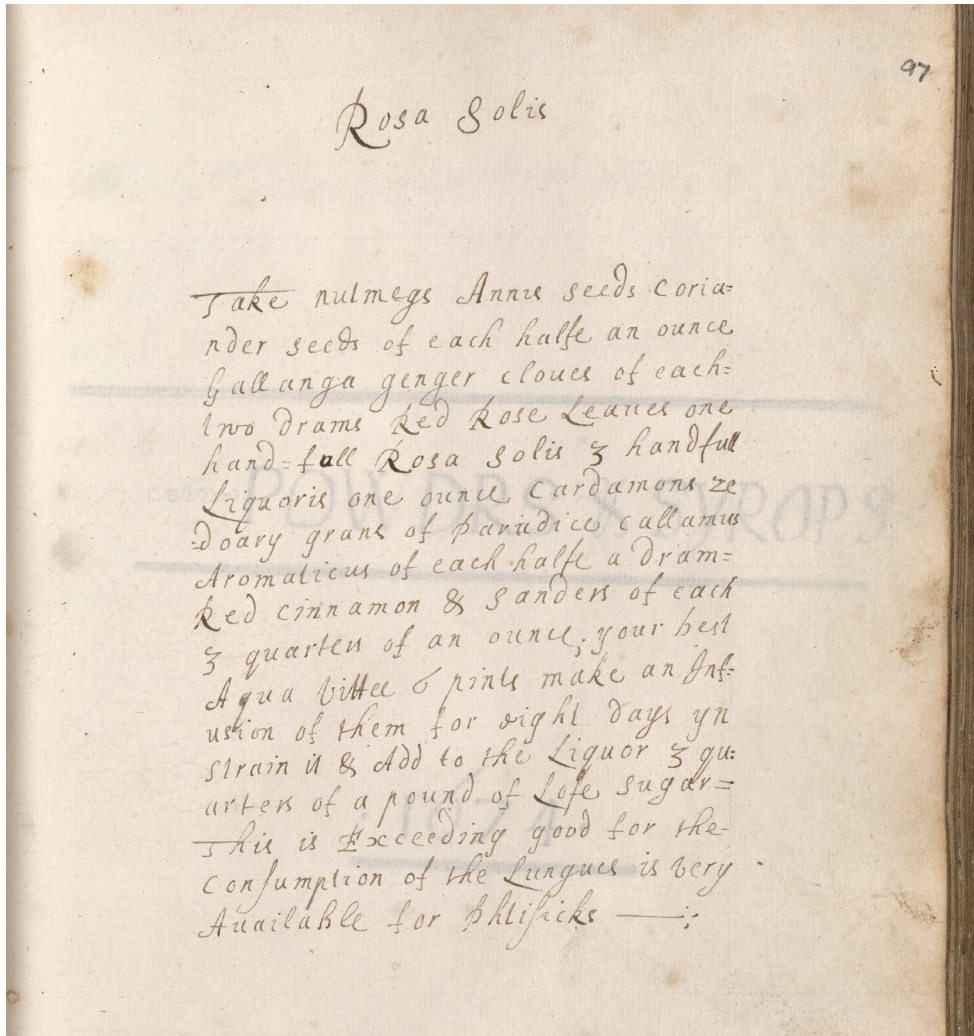 97
Rosa Solis
Take nutmegs Annis seeds Coria=
nder seeds of each halfe an ounce
Gallanga genger cloves of each=
two drams Red Rose Leaves one
hand=full Rosa Solis 3 handfull
Liquoris one ounce Cardamons ze
=doary grans of paradice callamus
Aromaticus of each halfe a dram=
Red cinnamon & Sanders of each
3 quarters of an ounce; your best
Aqua Vittee 6 pints make an Inf=
usion of them for eight days yn
strain it & Add to the Liquor 3 qu=
arters of a pound of Lofe sugar=
This is Exceeding good for the
Consumption of the Lungues is very
Auailable for phtisicks
POWDRS & SYROPS